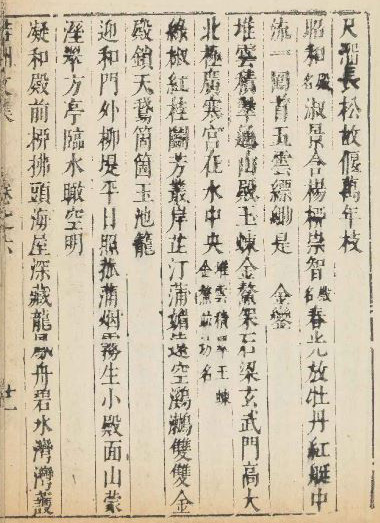 尺湘長松故偃萬年枝
昭和殿名淑景合楊揷崇智殿名春光放牡丹紅艇中
流一園首五雲縹緲是 金鑾
堆雲積翠遶山殿玉蝀金鰲架石梁玄武門高大
北極廣寒宫在水中央堆雲積翠玉蝀金鰲並坊名
綠椒紅桂鬬芳叢岸芷汀蒲媚遠空鸂鶒雙雙金
殿鎖天鵞箇箇玉池籠
迎和門外柳堤平日照菰蒲烟霧生小殿面山蒙
溼翠方亭臨水瞰空明
凝和殿前柳拂頭海屋深藏龍鳳舟碧水灣灣叢